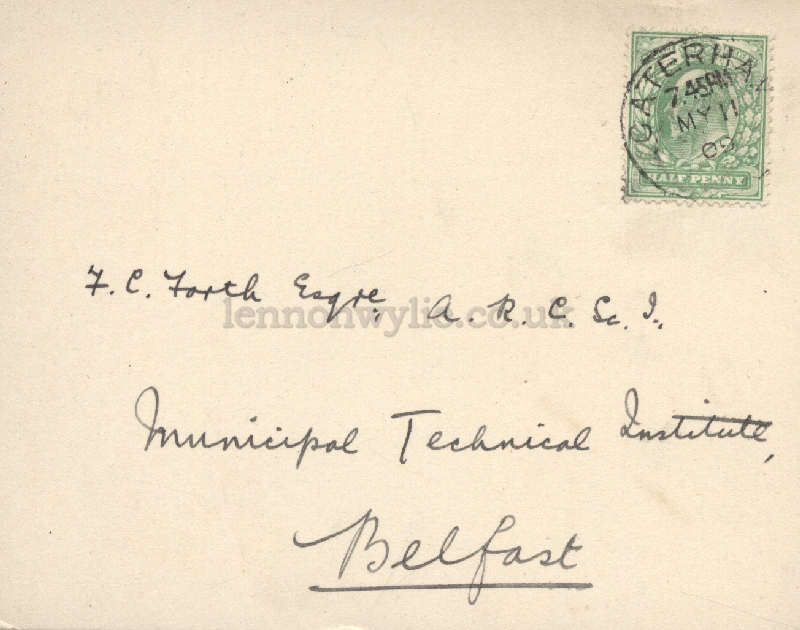 CATERHA
7.45PM
MY 11
HALF PENNY
F. C. Forth Esqre, A. R. C. Sc. I.,
lennonwylie.co.uk
Municipal Technical Institute,
Belfast